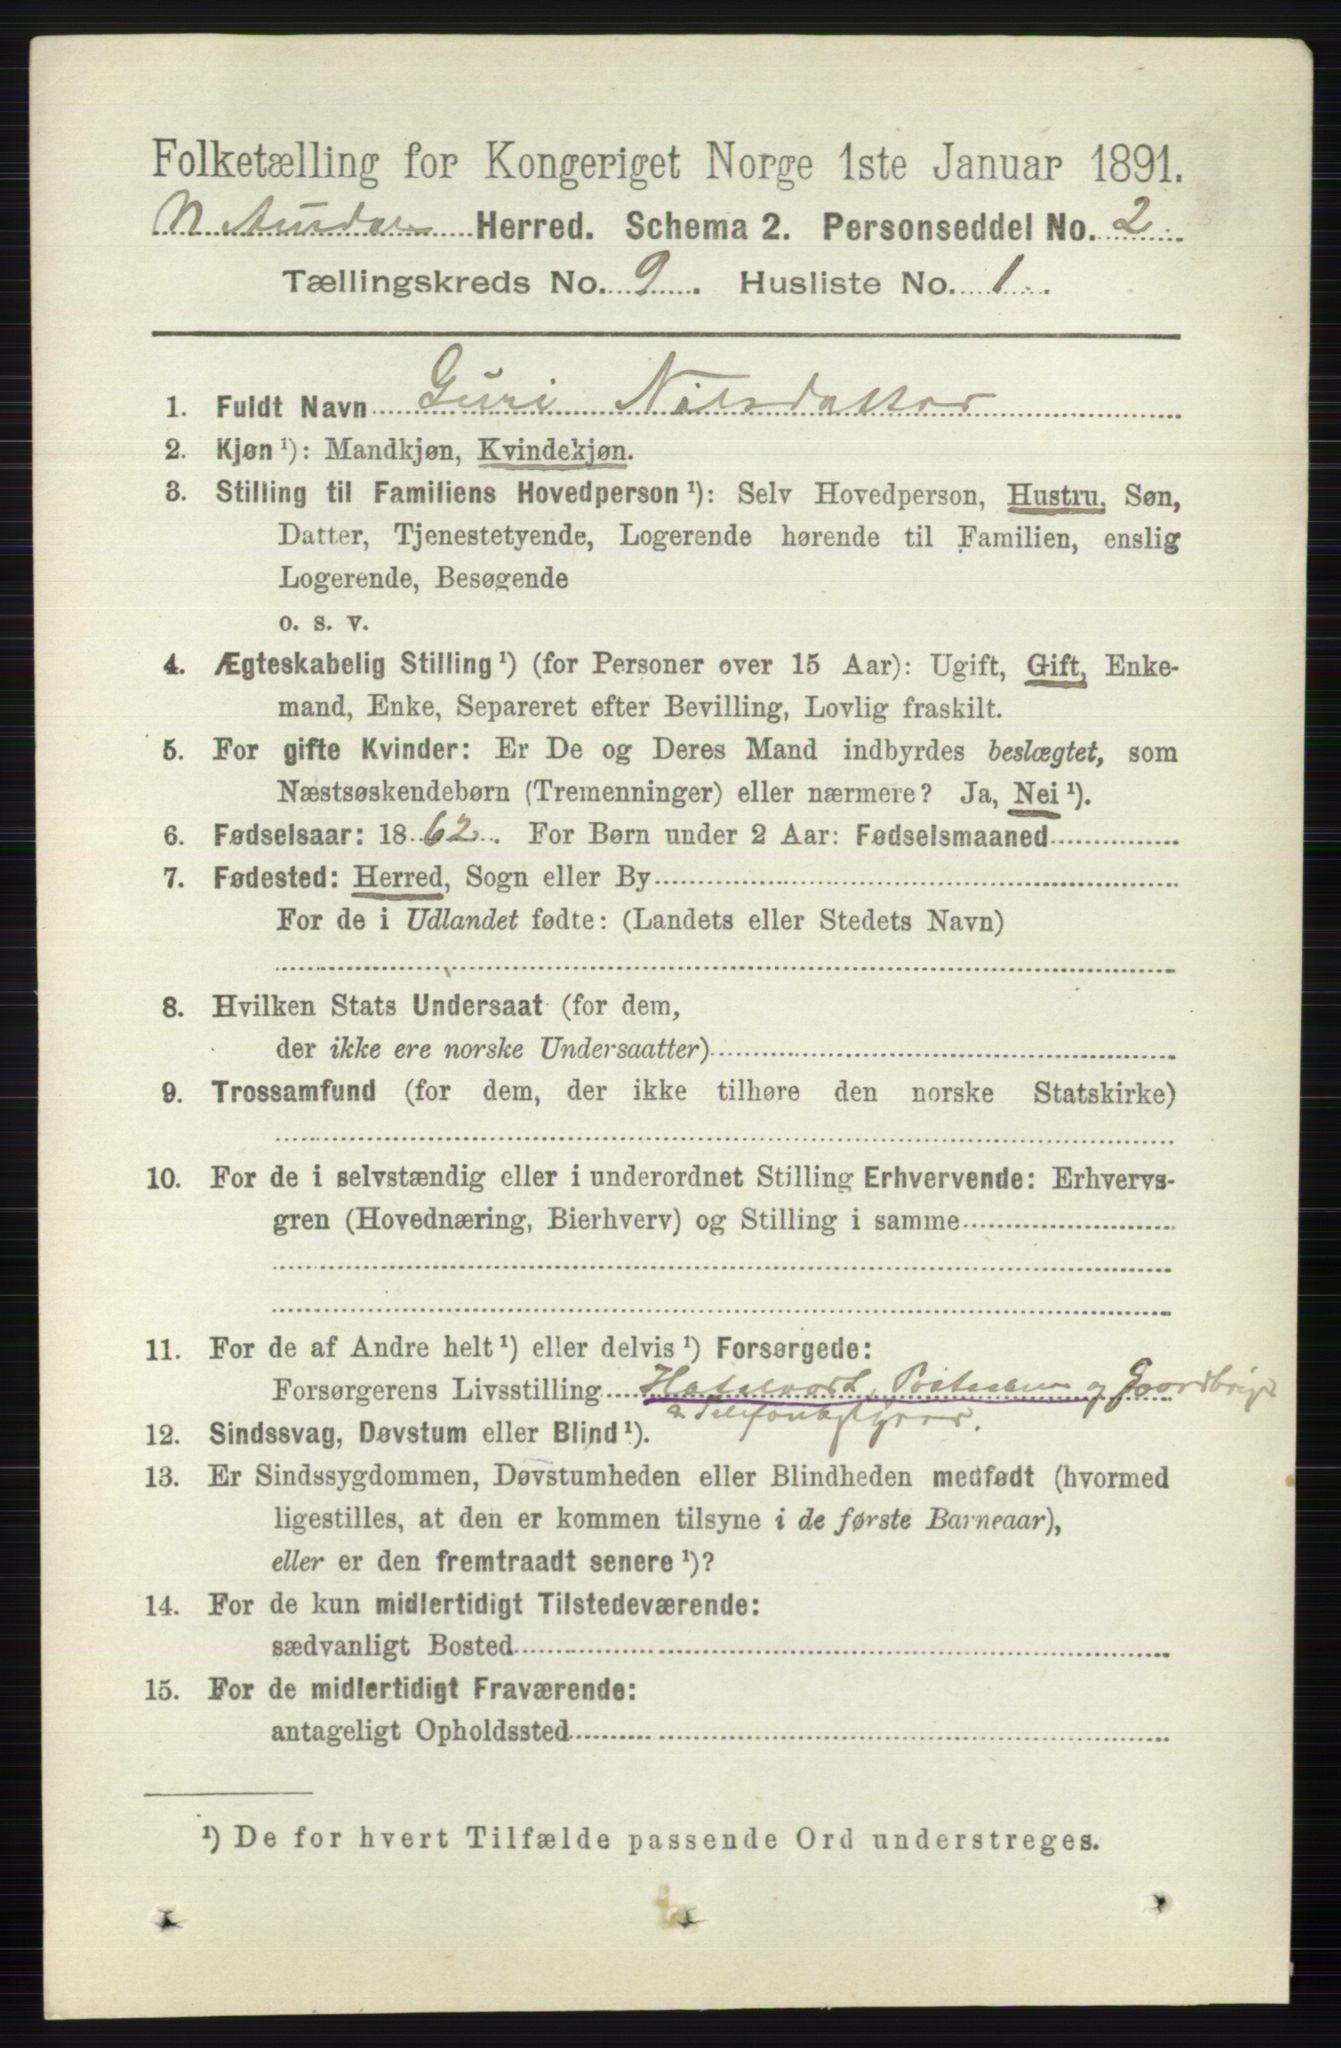 Folketælling for Kongeriget Norge 1ste Januar 1891.
N Aurdal Herred. Schema 2. Personseddel No. 2
Tællingskreds No. 9. Husliste No. 1.
1. Fuldt Navn Guri Nilsdatter
2. Kjøn ¹): Mandkjøn, Kvindekjøn.
3. Stilling til Familiens Hovedperson ¹): Selv Hovedperson, Hustru, Søn,
Datter, Tjenestetyende, Logerende hørende til Familien, enslig
Logerende, Besøgende
o. s. v.
4. Ægteskabelig Stilling ¹) (for Personer over 15 Aar): Ugift, Gift, Enke-
mand, Enke, Separeret efter Bevilling, Lovlig fraskilt.
5. For gifte Kvinder: Er De og Deres Mand indbyrdes beslægtet, som
Næstsøskendebørn (Tremenninger) eller nærmere? Ja, Nei ¹).
6. Fødselsaar: 1862. For Børn under 2 Aar: Fødselsmaaned
7. Fødested: Herred, Sogn eller By
For de i Udlandet fødte: (Landets eller Stedets Navn)
8. Hvilken Stats Undersaat (for dem,
der ikke ere norske Undersaatter)
9. Trossamfund (for dem, der ikke tilhøre den norske Statskirke)
10. For de i selvstændig eller i underordnet Stilling Erhvervende: Erhvervs-
gren (Hovednæring, Bierhverv) og Stilling i samme
11. For de af Andre helt ¹) eller delvis ¹) Forsørgede:
Forsørgerens Livsstilling Hotelvært, og Gaardbrúger
12. Sindssvag, Døvstum eller Blind ¹). & Telefonbestyrer.
13. Er Sindssygdommen, Døvstumheden eller Blindheden medfødt (hvormed
ligestilles, at den er kommen tilsyne i de første Barneaar),
eller er den fremtraadt senere ¹)?
14. For de kun midlertidigt Tilstedeværende:
sædvanligt Bosted
15. For de midlertidigt Fraværende:
antageligt Opholdssted
¹) De for hvert Tilfælde passende Ord understreges.